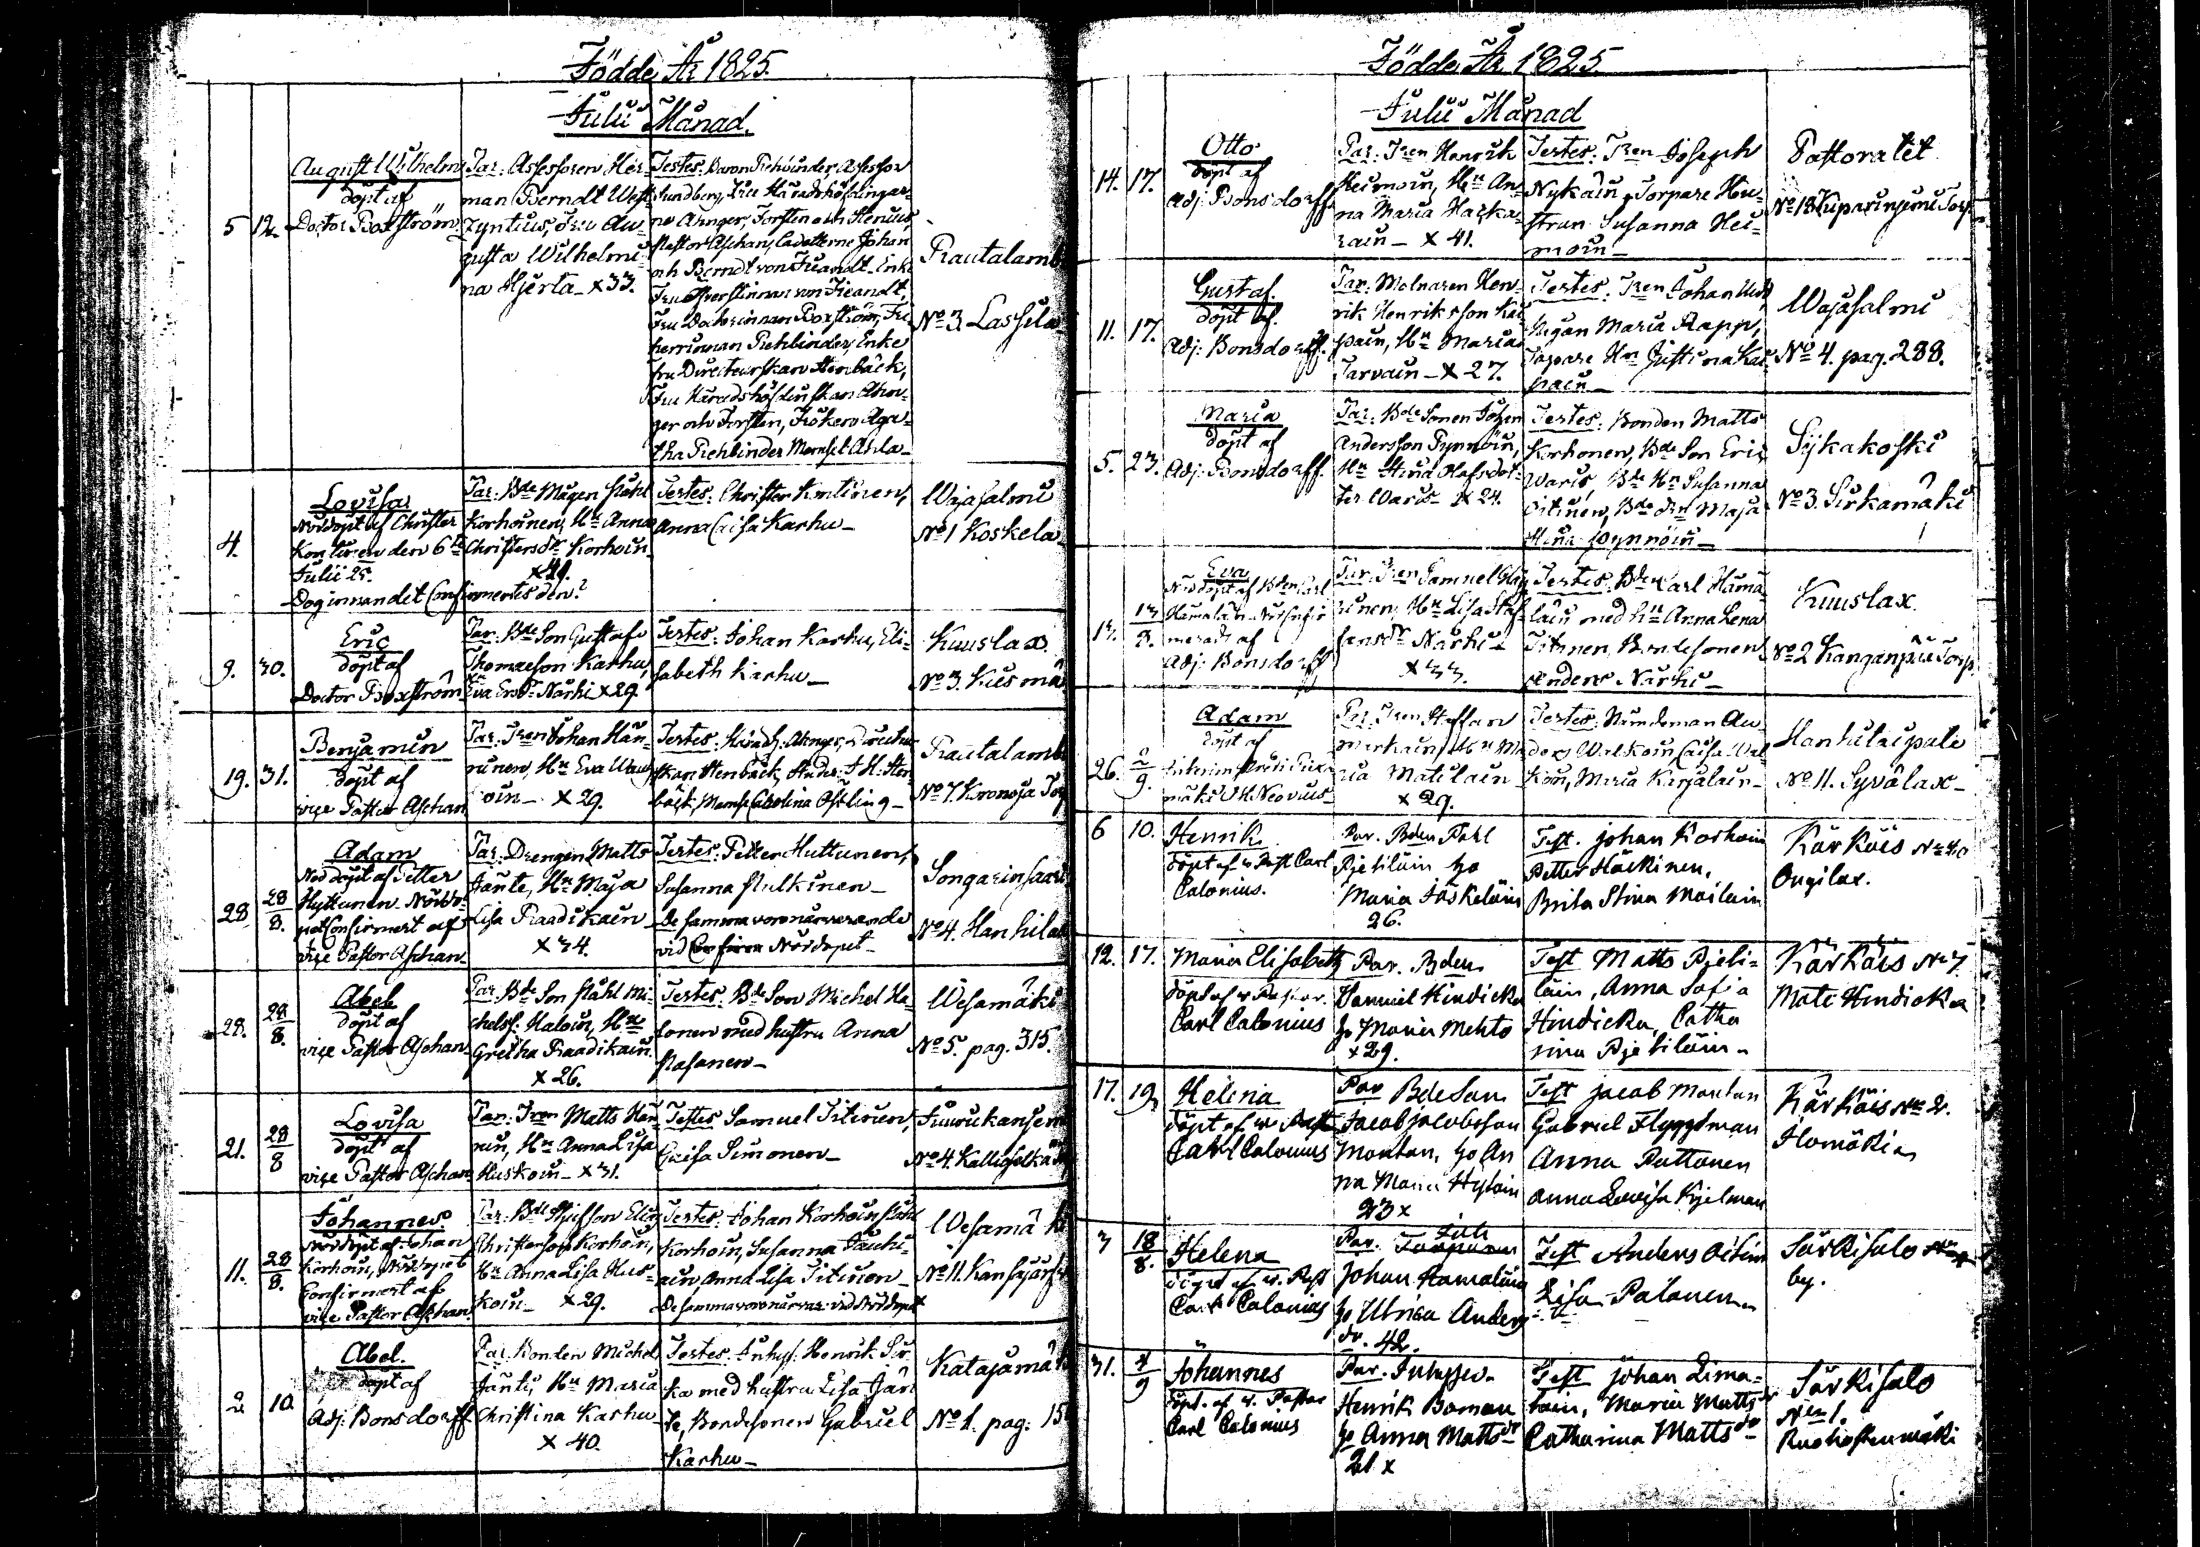 Födde År 1825.
Julii Månad.
5 12.
August Wilhelm
döpt af
Doctor Boxström
Par: Assessoren Her-
man Berndt West-
zyntius, Fru Au-
gusta Wilhelmi-
na Hjerta - x 33.
Testes. Baron Rehbinder, Assessor
Lundberg,
och Berndt von Fieandt, Enke
Fru Öfverstinnan von Fieandt,
Fru Doctorinnan Boxström, Fri-
herrinnan Rehbinder, Enke
fru Directeurskan Stenbäck,
ger och Forsten, Fröken Aga-
tha Rehbinder Mamsel Ahla-
Rautalamb
No 3. Lassila
4.
Lovisa
Nöddöpt af Christer
Kontinen den 6te
Julii 25.
Par: Bde Mågen Påhl
Korhoinen, Hn Anna
Christersdr Korhoin
x 29.
Testes: Christer Kontinen,
Anna Caisa Karhu -
Wajasalmi
No 1 Koskela
9. 30.
Eric
döpt af
Doctor Boxström
Par: Bde Son Gustaf
Thomasson Karhu,
Eva Ersdr Närhi x 29.
Testes: Johan Karhu, Eli-
sabeth Karhu -
Kuuslax
No 3. Kiesimä
19. 31.
Benjamin
döpt af
vice Pastor Aschan
Par: Tren Johan Hän-
ninen, Hn Eva Wauh-
oin - x 29.
Testes:
skan Stenbäck, Studer: J H: Sten
bäck, Mamsel Carolina Östling -
Rautalamb
No 7. Kronoja Torp
28 28/8.
Adam
Nöddöpt af Petter
Huttunen. Nöddo-
pet Confirmert af
vice Pastor Aschan
Par: Drengen Matts
Jänte, Hn Maja
Lisa Raadikain
x 34.
Testes: Petter Huttunen,
Susanna Pulkinen -
De samma voro närvarande
vid Nöddopet -
Songarinsaari
No 4. Hanhila
28. 28/8.
Abel
döpt af
vice Pastor Aschan
Par: Bde Son Påhl Mi-
chelss: Haloin, Hn
Gretha Raadikain
x 26.
Testes: Bde Son Michel Ha-
lonen med hustru Anna
Pasanen -
Wesamäki
No 5. pag. 315.
21. 28/8
Lovisa
döpt af
vice Pastor Aschan
Par: Tren Matts Hän-
nin, Hn Anna Lisa
Huskoin - x 31.
Testes Samuel Titinen,
Caisa Simonen -
No 4.
11. 28/8.
Johannes
Nöddöpt af Johan
Korhoin, Nöddopet
Confirmert af
vice Pastor Aschan
Christersson Korhoin,
Hn Anna Lisa Hus-
koin - x 29.
Testes: Johan Korhoin, Påhl
Korhoin, Susanna Pauhi-
ain Anna Lisa Titinen -
De samma voro närvar: vid Nöddopet
Wesamäki
No 11. Kansajärfvi
2 10
Abel.
döpt af
Adj: Bonsdorff
Par: Bonden Michel
Jänti, Hn Maria
Christina Karhu
x 40.
Testes: Inhys: Henrik Sir-
ka med hustru Lisa Jän-
te, Bondesonen Gabriel
Karhu -
Katajamä
No 1. pag: 15
Födde År 1825.
Julii Månad
14. 17.
Otto
döpt af
Adj: Bonsdorff
Par: Tren Henrik
Heimoin, Hn An-
na Maria Haika-
rain - x 41.
Testes: Tren Joseph
Nykäin, Torpare Hu-
strun Susanna Hei-
moin -
Pastoratet
No 18. Kuparinjemi Torp
11. 17.
Gustaf.
döpt af.
Adj: Bonsdorff.
Par: Molnaren Hen-
rik Henriksson Kai-
pain, Hn Maria
Tarvain - x 27.
Testes: Tren Johan
Pigan Maria Rapp,
Torpare Hn Justina Kai-
pain -
Wajasalmi
No 4. pag. 288.
5. 23.
Maria
döpt af
Adj: Bonsdorff.
Par: Bde Sonen Johan
Andersson Pynnöin,
Hn Stina Olafsdot-
ter Waris - x 24.
Testes: Bonden Matts
Korhonen, Bde Son Eric
Waris, Bde Hn Susanna
Oitinen, Bde dr Maja
Stina Pynnöin -
Sykäkoski
No 3. Sirkamäki
13/8.
Eva
Nöddöpt af Bden Carl
Hämäläin
af
Adj: Bonsdorff
Par: Tren Samuel
Hn Lisa Staf-
fansdr Närhi -
x 33.
Testes: Bden Carl Hämä-
läin med Hn Anna Lena
Titinen, Bondesonen
Anders Närhi -
Kuuslax
No 2 Kanganpää Torp.
26. 2/9.
Adam
döpt af
Neovius
Par: Tren Staffan
Markain, Hn Ma-
ria Matilain
x 29.
Testes: Nämndeman An-
ders Walkoin Caisa Wal-
koin, Maria Karjalain -
Hanhitaipale
No 11. Syvälax -
6 10.
Henrik
döpt af v. Past Carl
Calonius.
Par. Bden Pahl
Pjetiläin ho
Maria Jäskeläin
26.
Test. Johan Korhoin
Petter Häckinen,
Brita Stina Moilain
Kärkäis No 40
Ongilax.
12. 17.
Maria Elisabeth
döpt af v Pastor.
Carl Calonius
Par. Bden
Samuel Hindicka
ho Maria Mehto
x 29.
Test Matts Pjeti-
läin, Anna Sofia
Hindicka, Catha
rina Pjetiläin -
Kärkäis No 7.
Mate Hindicka
17. 19
Helena
döpt af v Past
Carl Calonius
Par Bde Son
Jacob Jacobsson
Montan, ho An
na Maria Hytöin
23 x
Test Jacob Montan
Gabriel Flyggtman
Anna Puttonen
Anna Lovisa Kjelman
Kärkäis No 2.
Ilomäki
3 18/8.
Helena
döpt af v. Past
Carl Calonius
Par.
Johan Hämäläin
ho Ulrica Anders
dr. 42.
Test Anders Oitin
Lisa Palonen
Särkisalo
by.
31. 4/9
Johannes
döpt. af v. Pastor
Carl Calonius
Par. Inhyses
Henrik Boman
ho Anna Mattsdr
21 x
Test Johan Lima-
tain, Maria Mattsdr
Catharina Mattsdr
Särkisalo
No 1.